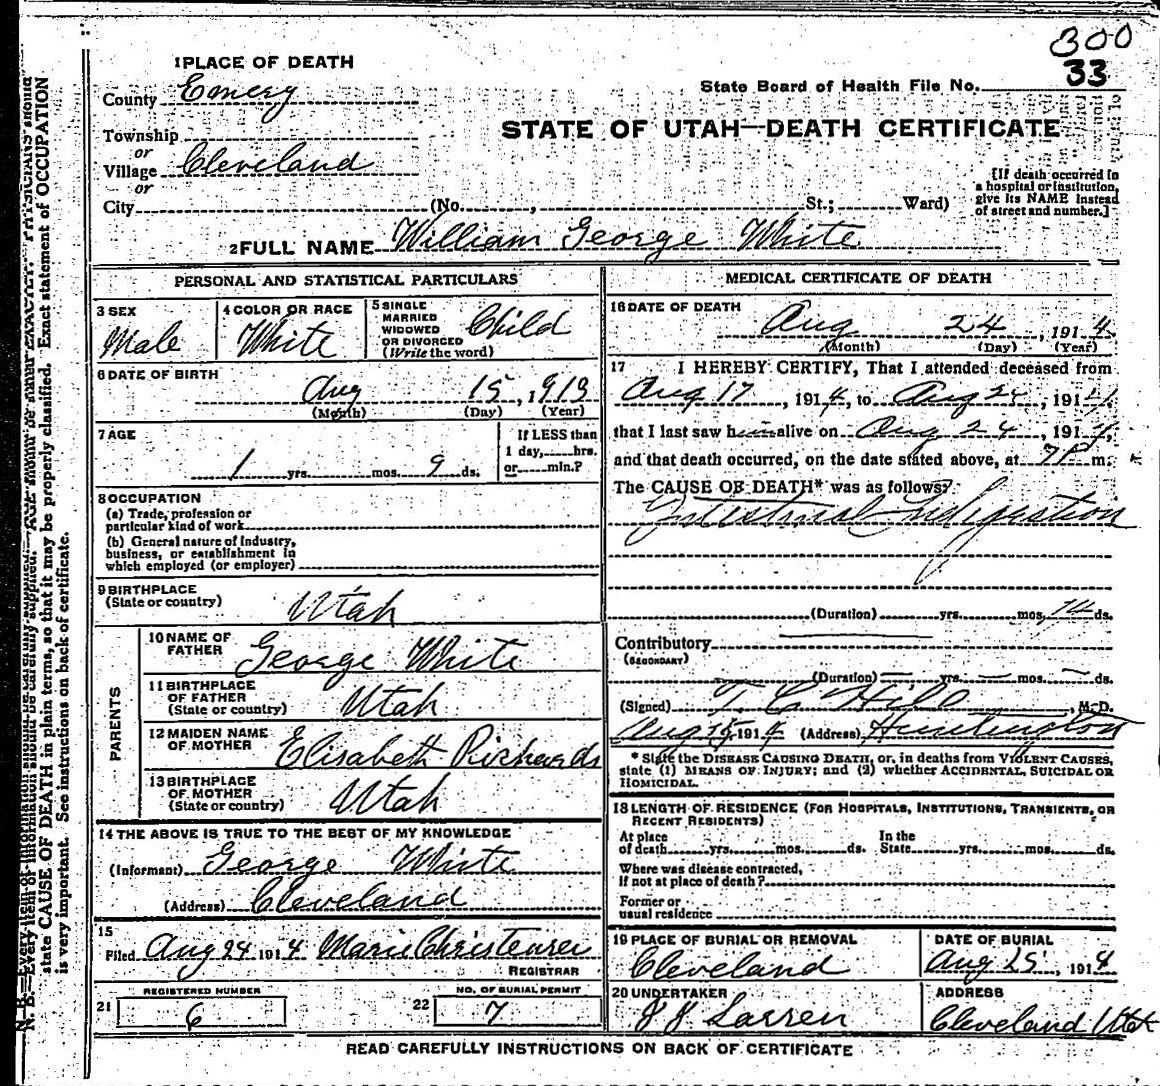 300
33
1 PLACE OF DEATH
State Board of Health File No.
County Emery
STATE OF UTAH—DEATH CERTIFICATE
Township
or
Village Cleveland
or
City (No. , St.; Ward)
[If death occurred in
a hospital or institution,
give its NAME instead
of street and number.]
2 FULL NAME William George White
PERSONAL AND STATISTICAL PARTICULARS
3 SEX
Male
4 COLOR OR RACE
White
5 SINGLE
MARRIED
WIDOWED
OR DIVORCED
(Write the word)
Child
6 DATE OF BIRTH
Aug 15, 1913
(Month) (Day) (Year)
7 AGE
1 yrs. mos. 9 ds.
If LESS than
1 day, hrs.
or min.?
8 OCCUPATION
(a) Trade, profession or
particular kind of work
(b) General nature of Industry,
business, or establishment in
which employed (or employer)
9 BIRTHPLACE
(State or country) Utah
PARENTS
10 NAME OF
FATHER George White
11 BIRTHPLACE
OF FATHER
(State or country) Utah
12 MAIDEN NAME
OF MOTHER Elisabeth Richards
13 BIRTHPLACE
OF MOTHER
(State or country) Utah
14 THE ABOVE IS TRUE TO THE BEST OF MY KNOWLEDGE
(Informant) George White
(Address) Cleveland
15
Filed Aug 24 1914 Marie Christensen
REGISTRAR
REGISTERED NUMBER
21 6
NO. OF BURIAL PERMIT
22 7
MEDICAL CERTIFICATE OF DEATH
16 DATE OF DEATH
Aug 24, 1914
(Month) (Day) (Year)
17 I HEREBY CERTIFY, That I attended deceased from
Aug 17, 1914, to Aug 24, 1914
that I last saw him alive on Aug 24, 1914,
and that death occurred, on the date stated above, at 7P m.
The CAUSE OF DEATH* was as follows:
Intestinal Indigestion
(Duration) yrs. mos. 14 ds.
Contributory
(SECONDARY)
(Duration) yrs. mos. ds.
(Signed) T. C. Hill, M. D.
Aug 25, 1914 (Address) Huntington
* State the DISEASE CAUSING DEATH, or, in deaths from VIOLENT CAUSES,
state (1) MEANS OF INJURY; and (2) whether ACCIDENTAL, SUICIDAL OR
HOMICIDAL.
18 LENGTH OF RESIDENCE (FOR HOSPITALS, INSTITUTIONS, TRANSIENTS, OR
RECENT RESIDENTS)
At place
of death yrs. mos. ds.
In the
State yrs. mos. ds.
Where was disease contracted,
If not at place of death?
Former or
usual residence
19 PLACE OF BURIAL OR REMOVAL
Cleveland
DATE OF BURIAL
Aug 25, 1914
20 UNDERTAKER
J J Larsen
ADDRESS
Cleveland Utah
READ CAREFULLY INSTRUCTIONS ON BACK OF CERTIFICATE
state CAUSE OF DEATH in plain terms, so that it may be properly classified. Exact statement of OCCUPATION
is very important. See instructions on back of certificate.